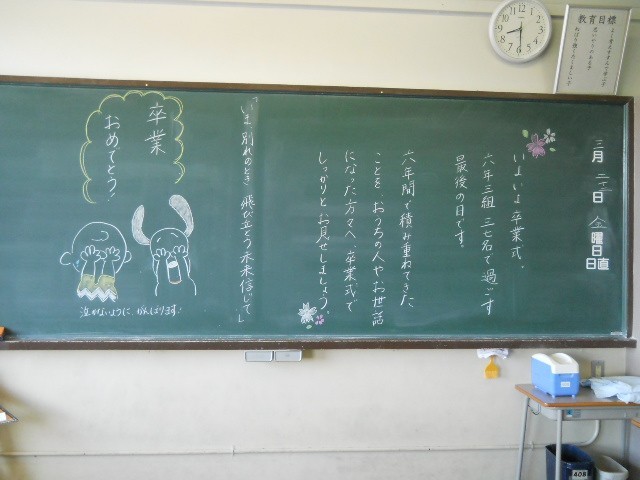 教育目標
三月 二十日 金曜日
日直
いよいよ卒業式。
六年三組 三七名で過ごす
最後の日です。
六年間で積み重ねてきた
ことを おうちの人やお世話
になった方々へ、卒業式で
しっかりとお見せしましょう。
いま、別れのとき 飛び立とう 未来信じて」
卒業
おめでとう!
泣かないように、がんばります!
12